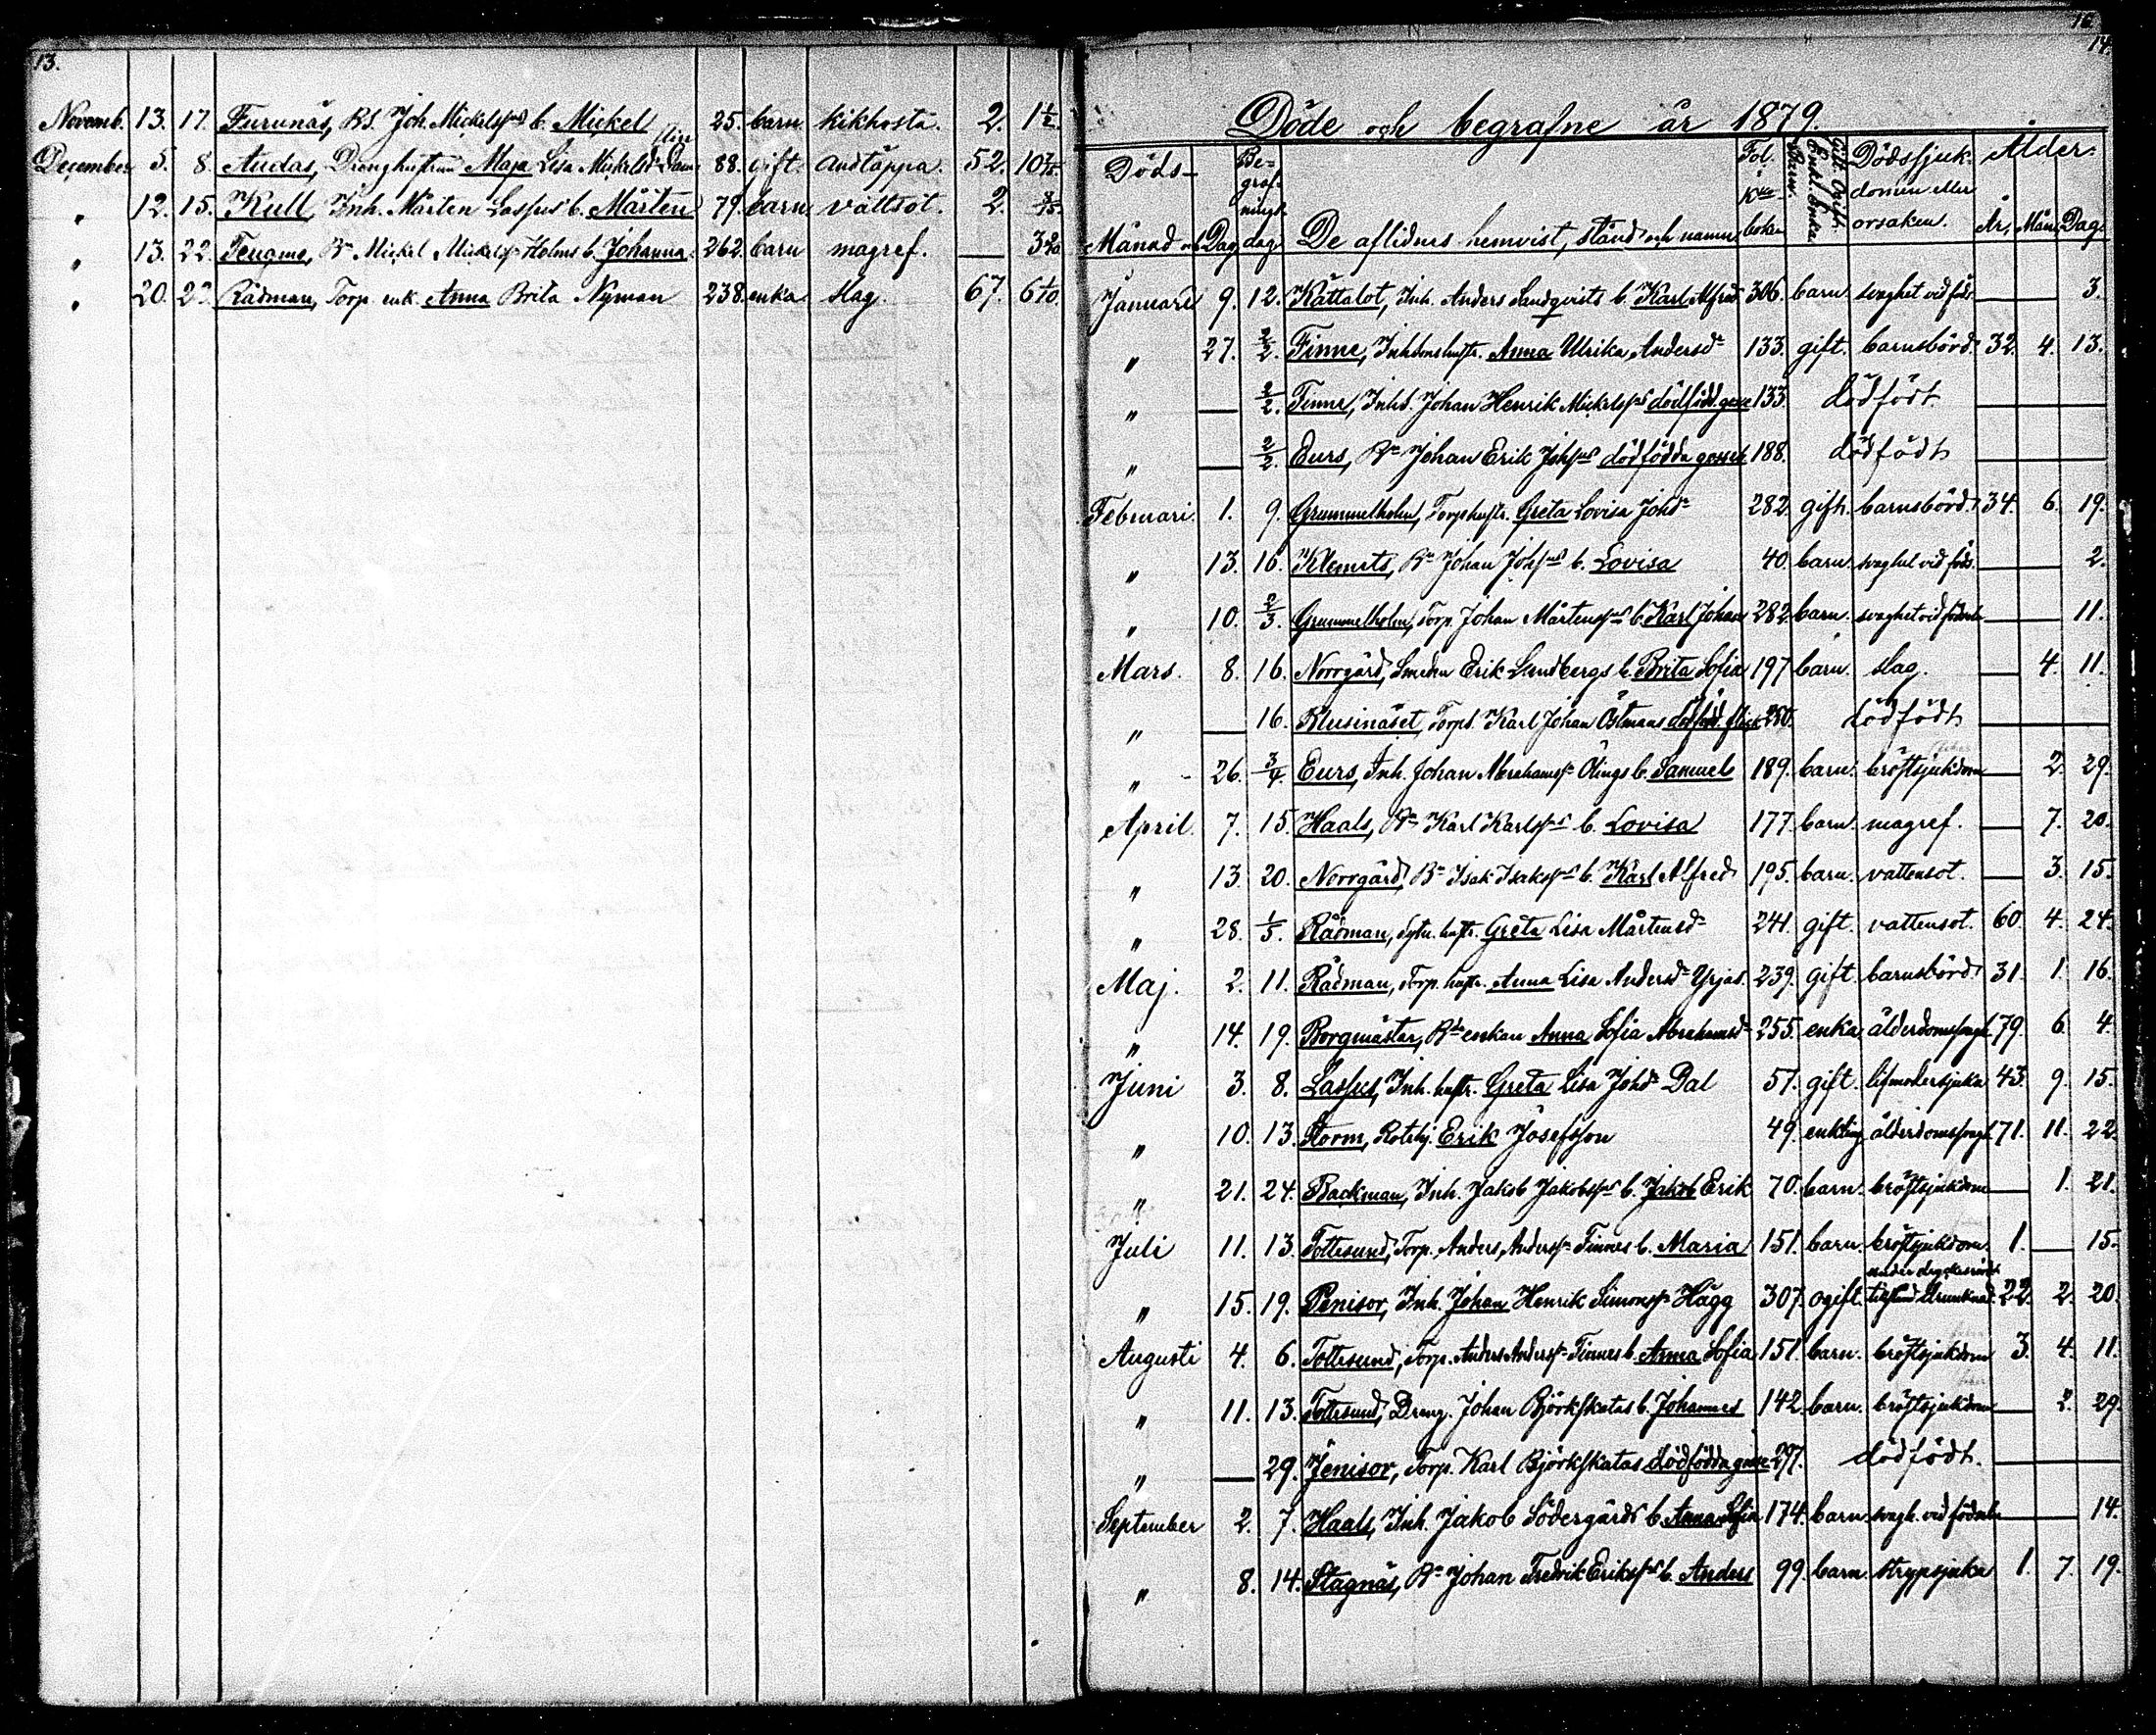 13.
Novemb. 13. 17. Furunäs, Bd. Joh Mickelss b. Mickel 25. barn kikhosta. 2. 1½
December 5. 8. Andas, Dränghustrun Maja Lisa Mickelsd 88. gift. andtäppa. 52.
" 12. 15. Kull, Inh. Mårten Lassus b. Mårten 79. barn vattsot. 2.
" 13. 22. Tengme, Bn Mickel Mickelss Holms b. Johanna 262. barn magref. —
" 20. Rådman, Torp. enk. Anna Brita Nyman 238. enka slag. 67.
14.
Döde och begrafne år 1879.
Döds- Månad och Dag. Begrafnings dag. De aflidnes hemvist, stånd och namn Fol. i K. boken Barn. Gift. Ogift. Enkl. Enka Dödssjukdomen eller orsaken. Ålder. År, Mån, Dag.
Januari 9. 12. Kättalot, Inh. Anders Sandqvists b. Karl Alfred 306. barn svaghet vid föds. — 3.
" 27. 2/2. Finne, Inhdomshustr. Anna Ulrika Andersdr 133. gift. barnsbörd. 32. 4. 13.
" — 2/2. Finne, Inhd. Johan Henrik Mickelssns dödfödd. gosse 133. dödfödt. —
" — 2/2. Eurs, Bn Johan Erik Johssns dödfödda gosse 188. dödfödt —
Februari. 1. 9. Grummelholm, Torphustr. Greta Lovisa Johdr 282. gift. barnsbörd. 34. 6. 19.
" 13. 16. Klemets, Bn Johan Johssns b. Lovisa 40. barn. svaghet vid föds. — 2.
" 10. 2/3. Grummelholm, Torp. Johan Mårtenssns b. Karl Johan 282. barn. svaghet vid födseln — 11.
Mars. 8. 16. Norrgård, Smeden Erik Lundbergs b. Brita Sofia 197 barn. slag. — 4. 11.
" — 16. Klusinäset, Torp. Karl Johan Östmans dödföd. flick 280. dödfödt —
" 26. 3/4. Eurs, Inh. Johan Abrahamss Ölings b. Samuel 189. barn. bröstsjukdom — 2. 29.
April. 7. 15. Haals, Bn Karl Karlssns b. Lovisa 177. barn. magref. — 7. 20.
" 13. 20. Norrgård, Bn Isak Isakssns b. Karl Alfred 195. barn. vattensot. — 3. 15.
" 28. 1/5. Rådman, Sytn. hustr. Greta Lisa Mårtensdr 241. gift. vattensot. 60. 4. 24.
Maj. 2. 11. Rådman, Torp. hustr. Anna Lisa Andersdr Yrjas. 239. gift. barnsbörd 31. 1. 16.
" 14. 19. Borgmästar, Bde enkan Anna Sofia Abrahamsdr 255. enka. ålderdomssvagh. 79. 6. 4.
Juni 3. 8. Lassus, Inh. hustr. Greta Lisa Johdr Dal 51. gift. lifmodersjuka 43. 9. 15.
" 10. 13. Storm, Rotehj. Erik Josefsson 49. enkling ålderdomssvagh. 71. 11. 22.
" 21. 24. Backman, Inh. Jakob Jakobssns b. Jakob Erik 70. barn. bröstsjukdom — 1. 21.
Juli 11. 13. Tottesund, Torp. Anders Anderss Finnes b. Maria 151. barn. bröstsjukdom. 1. — 15.
" 15. 19. Penisor, Inh. Johan Henrik Simonss Hägg 307. ogift. under tillstånd drunknad. 22. 2. 20.
Augusti 4. 6. Tottesund, Torp. Anders Anderss Finnes b. Anna Sofia 151. barn. bröstsjukdom 3. 4. 11.
" 11. 13. Tottesund, Dreng. Johan Björkskatas b. Johannes 142. barn. bröstsjukdom — 2. 29.
" — 29. Jenisor, Torp. Karl Björkskatas dödfödda gosse 297. dödfödt. —
September 2. 7. Haals, Inh. Jakob Södergårds b. Anna Sofia 174. barn. svagh. vid födseln — 14.
" 8. 14. Stagnäs, Bn Johan Fredrik Erikssns b. Anders 99. barn. strypsjuka 1. 7. 19.